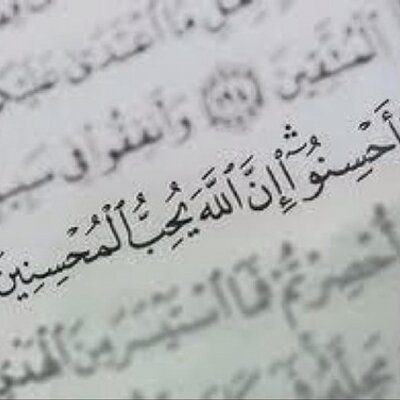 مَا ٱعْتَدَىٰ عَلَيْكُ
ٱلْمُتَّقِينَ ١٩٤ وَأَنفِقُوا۟ فِى سَبِي
أَحْسِنُوٓا۟ ۛ إِنَّ ٱللَّهَ يُحِبُّ ٱلْمُحْسِنِينَ
أُحْصِرْتُمْ فَمَا ٱسْتَيْسَرَ مِنَ ٱلْهَدْىِ
مَحِلَّهُۥ